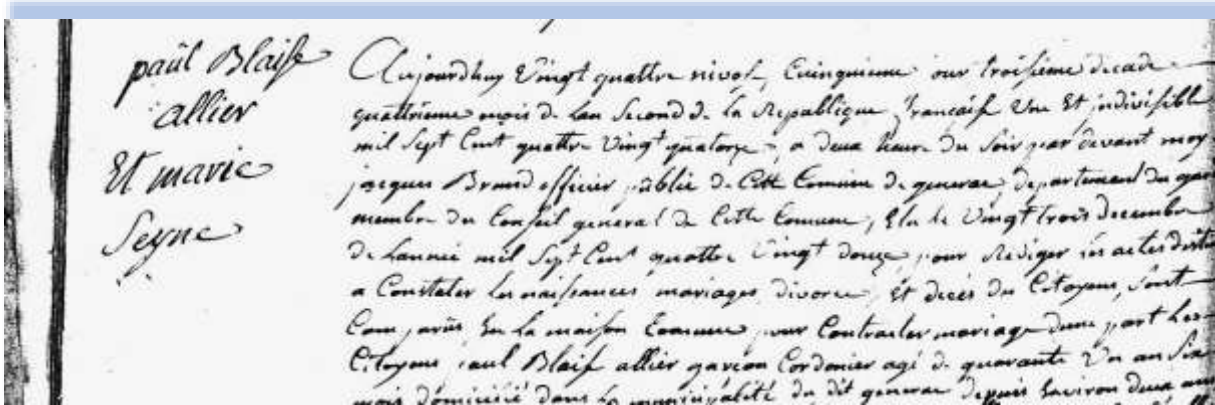 paul Blaise
allier
Et marie
Seyne
Aujourdhuy Vingt quattre nivose, Cuinquieme jour troisieme decade
quattrieme mois de Lan Second de la Republique francaise Une Et jndivisible
mil Sept Cent quattre Vingt quatorze, a deux heure du Soir par devant moy
jacques Brund officier public de Cette Comune de generac, departement du gar
membre du Conseil general de Cette Comune, Elu le Vingt trois decembre
de Lannée mil Sept Cent quattre Vingt douze pour Rediger les actes destin
a Constater les naissances mariages, divorce, Et decés des Citoyens, Sont
Comparûs En La maison Comune pour Contracter mariage dune part Les
Citoyens paul Blaise allier garcon Cordonier agé de quarante Un an Six
mois domicilié dans la municipalité du dit generac depuis Environ deux ans